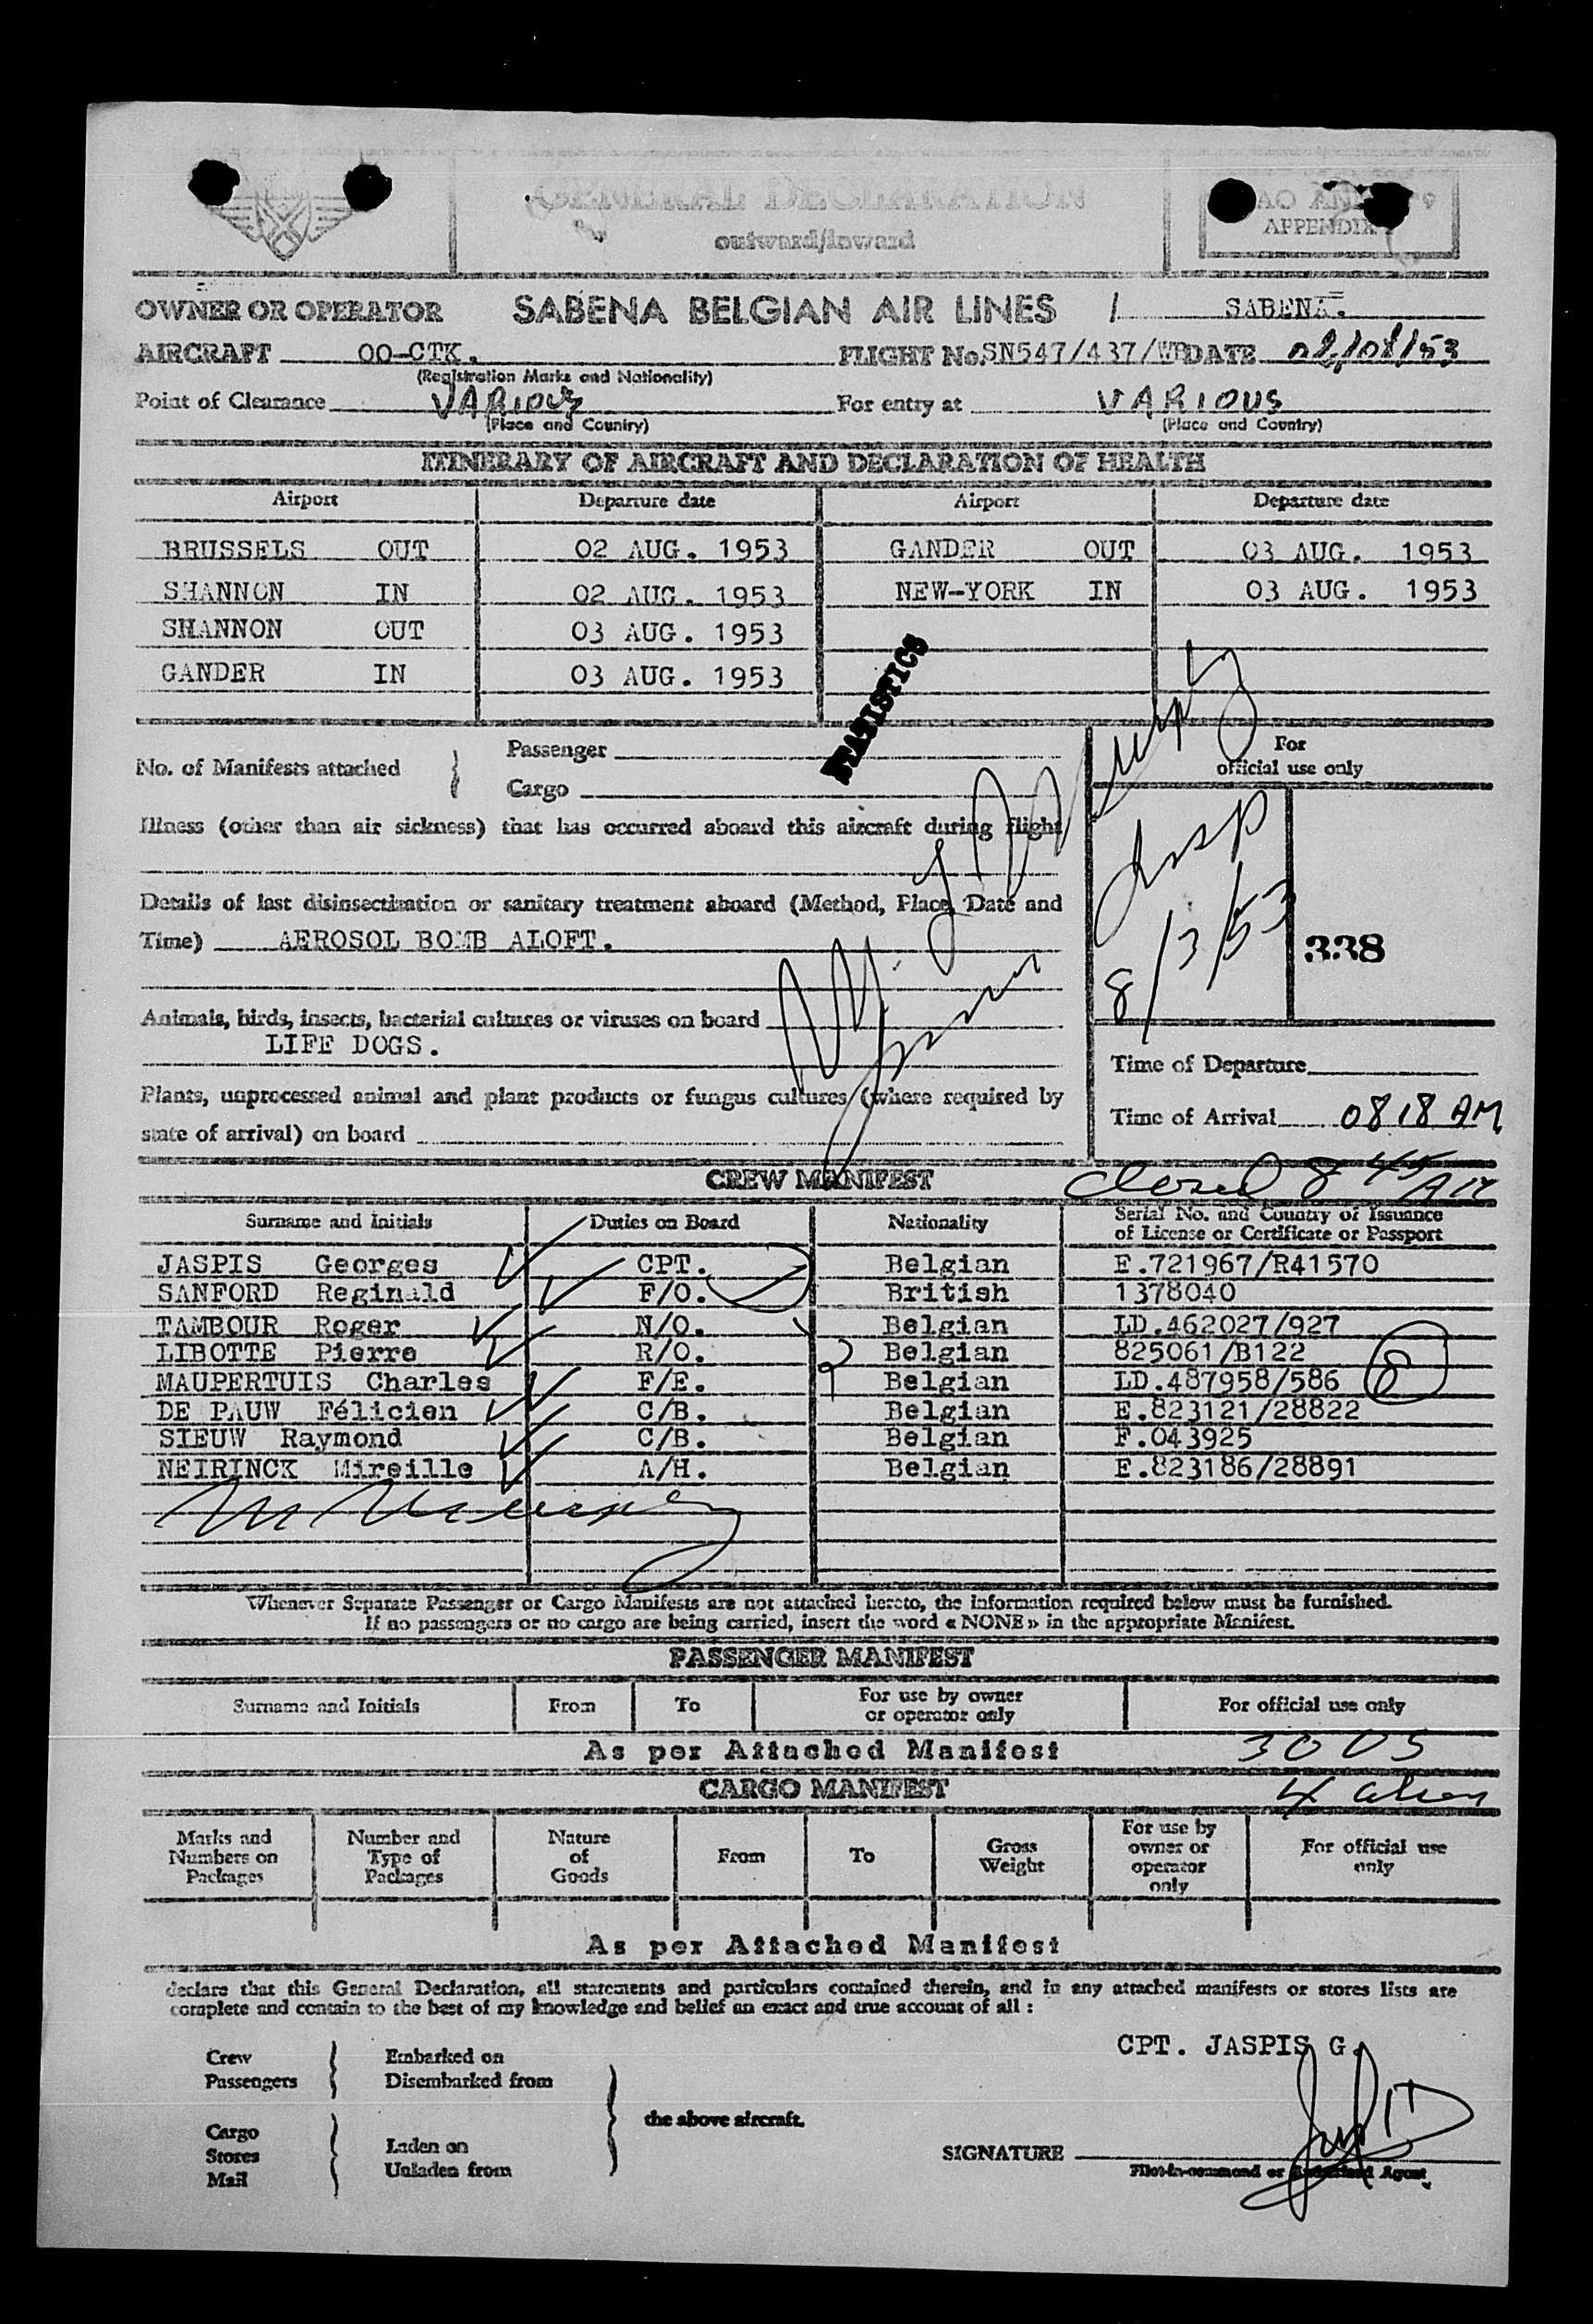 GENERAL DECLARATION
outward/inward
APPENDIX
OWNER OR OPERATOR SABENA BELGIAN AIR LINES / SABENA.
AIRCRAFT OO-CTK. FLIGHT No. SN547/437/WB DATE 02/08/53
(Registration Marks and Nationality)
Point of Clearance VARIOUS For entry at VARIOUS
(Place and Country) (Place and Country)
ITINERARY OF AIRCRAFT AND DECLARATION OF HEALTH
Airport Departure date Airport Departure date
BRUSSELS OUT 02 AUG. 1953 GANDER OUT 03 AUG. 1953
SHANNON IN 02 AUG. 1953 NEW-YORK IN 03 AUG. 1953
SHANNON OUT 03 AUG. 1953
GANDER IN 03 AUG. 1953
STATISTICS
No. of Manifests attached } Passenger
Cargo
For
official use only
Illness (other than air sickness) that has occurred aboard this aircraft during flight
Details of last disinsectization or sanitary treatment aboard (Method, Place, Date and
Time) AEROSOL BOMB ALOFT.
Insp
8/3/53
338
Animals, birds, insects, bacterial cultures or viruses on board
LIFE DOGS.
Time of Departure
Plants, unprocessed animal and plant products or fungus cultures (where required by
state of arrival) on board
Time of Arrival 0818 AM
CREW MANIFEST
Closed 8 45 AM
Surname and Initials Duties on Board Nationality Serial No. and Country of Issuance
of License or Certificate or Passport
JASPIS Georges CPT. Belgian E.721967/R41570
SANFORD Reginald F/O. British 1378040
TAMBOUR Roger N/O. Belgian LD.462027/927
LIBOTTE Pierre R/O. Belgian 825061/B122
MAUPERTUIS Charles F/E. Belgian LD.487958/586
8
DE PAUW Félicien C/B. Belgian E.823121/28822
SIEUW Raymond C/B. Belgian F.043925
NEIRINCK Mireille A/H. Belgian E.823186/28891
Whenever Separate Passenger or Cargo Manifests are not attached hereto, the information required below must be furnished.
If no passengers or no cargo are being carried, insert the word « NONE » in the appropriate Manifest.
PASSENGER MANIFEST
Surname and Initials From To For use by owner
or operator only For official use only
As per Attached Manifest
30 US
4 alien
CARGO MANIFEST
Marks and
Numbers on
Packages Number and
Type of
Packages Nature
of
Goods From To Gross
Weight For use by
owner or
operator
only For official use
only
As per Attached Manifest
declare that this General Declaration, all statements and particulars contained therein, and in any attached manifests or stores lists are
complete and contain to the best of my knowledge and belief an exact and true account of all :
CPT. JASPIS G.
Crew
Passengers } Embarked on
Disembarked from
Cargo
Stores
Mail } Laden on
Unladen from
the above aircraft.
SIGNATURE
Pilot-in-command or Authorized Agent